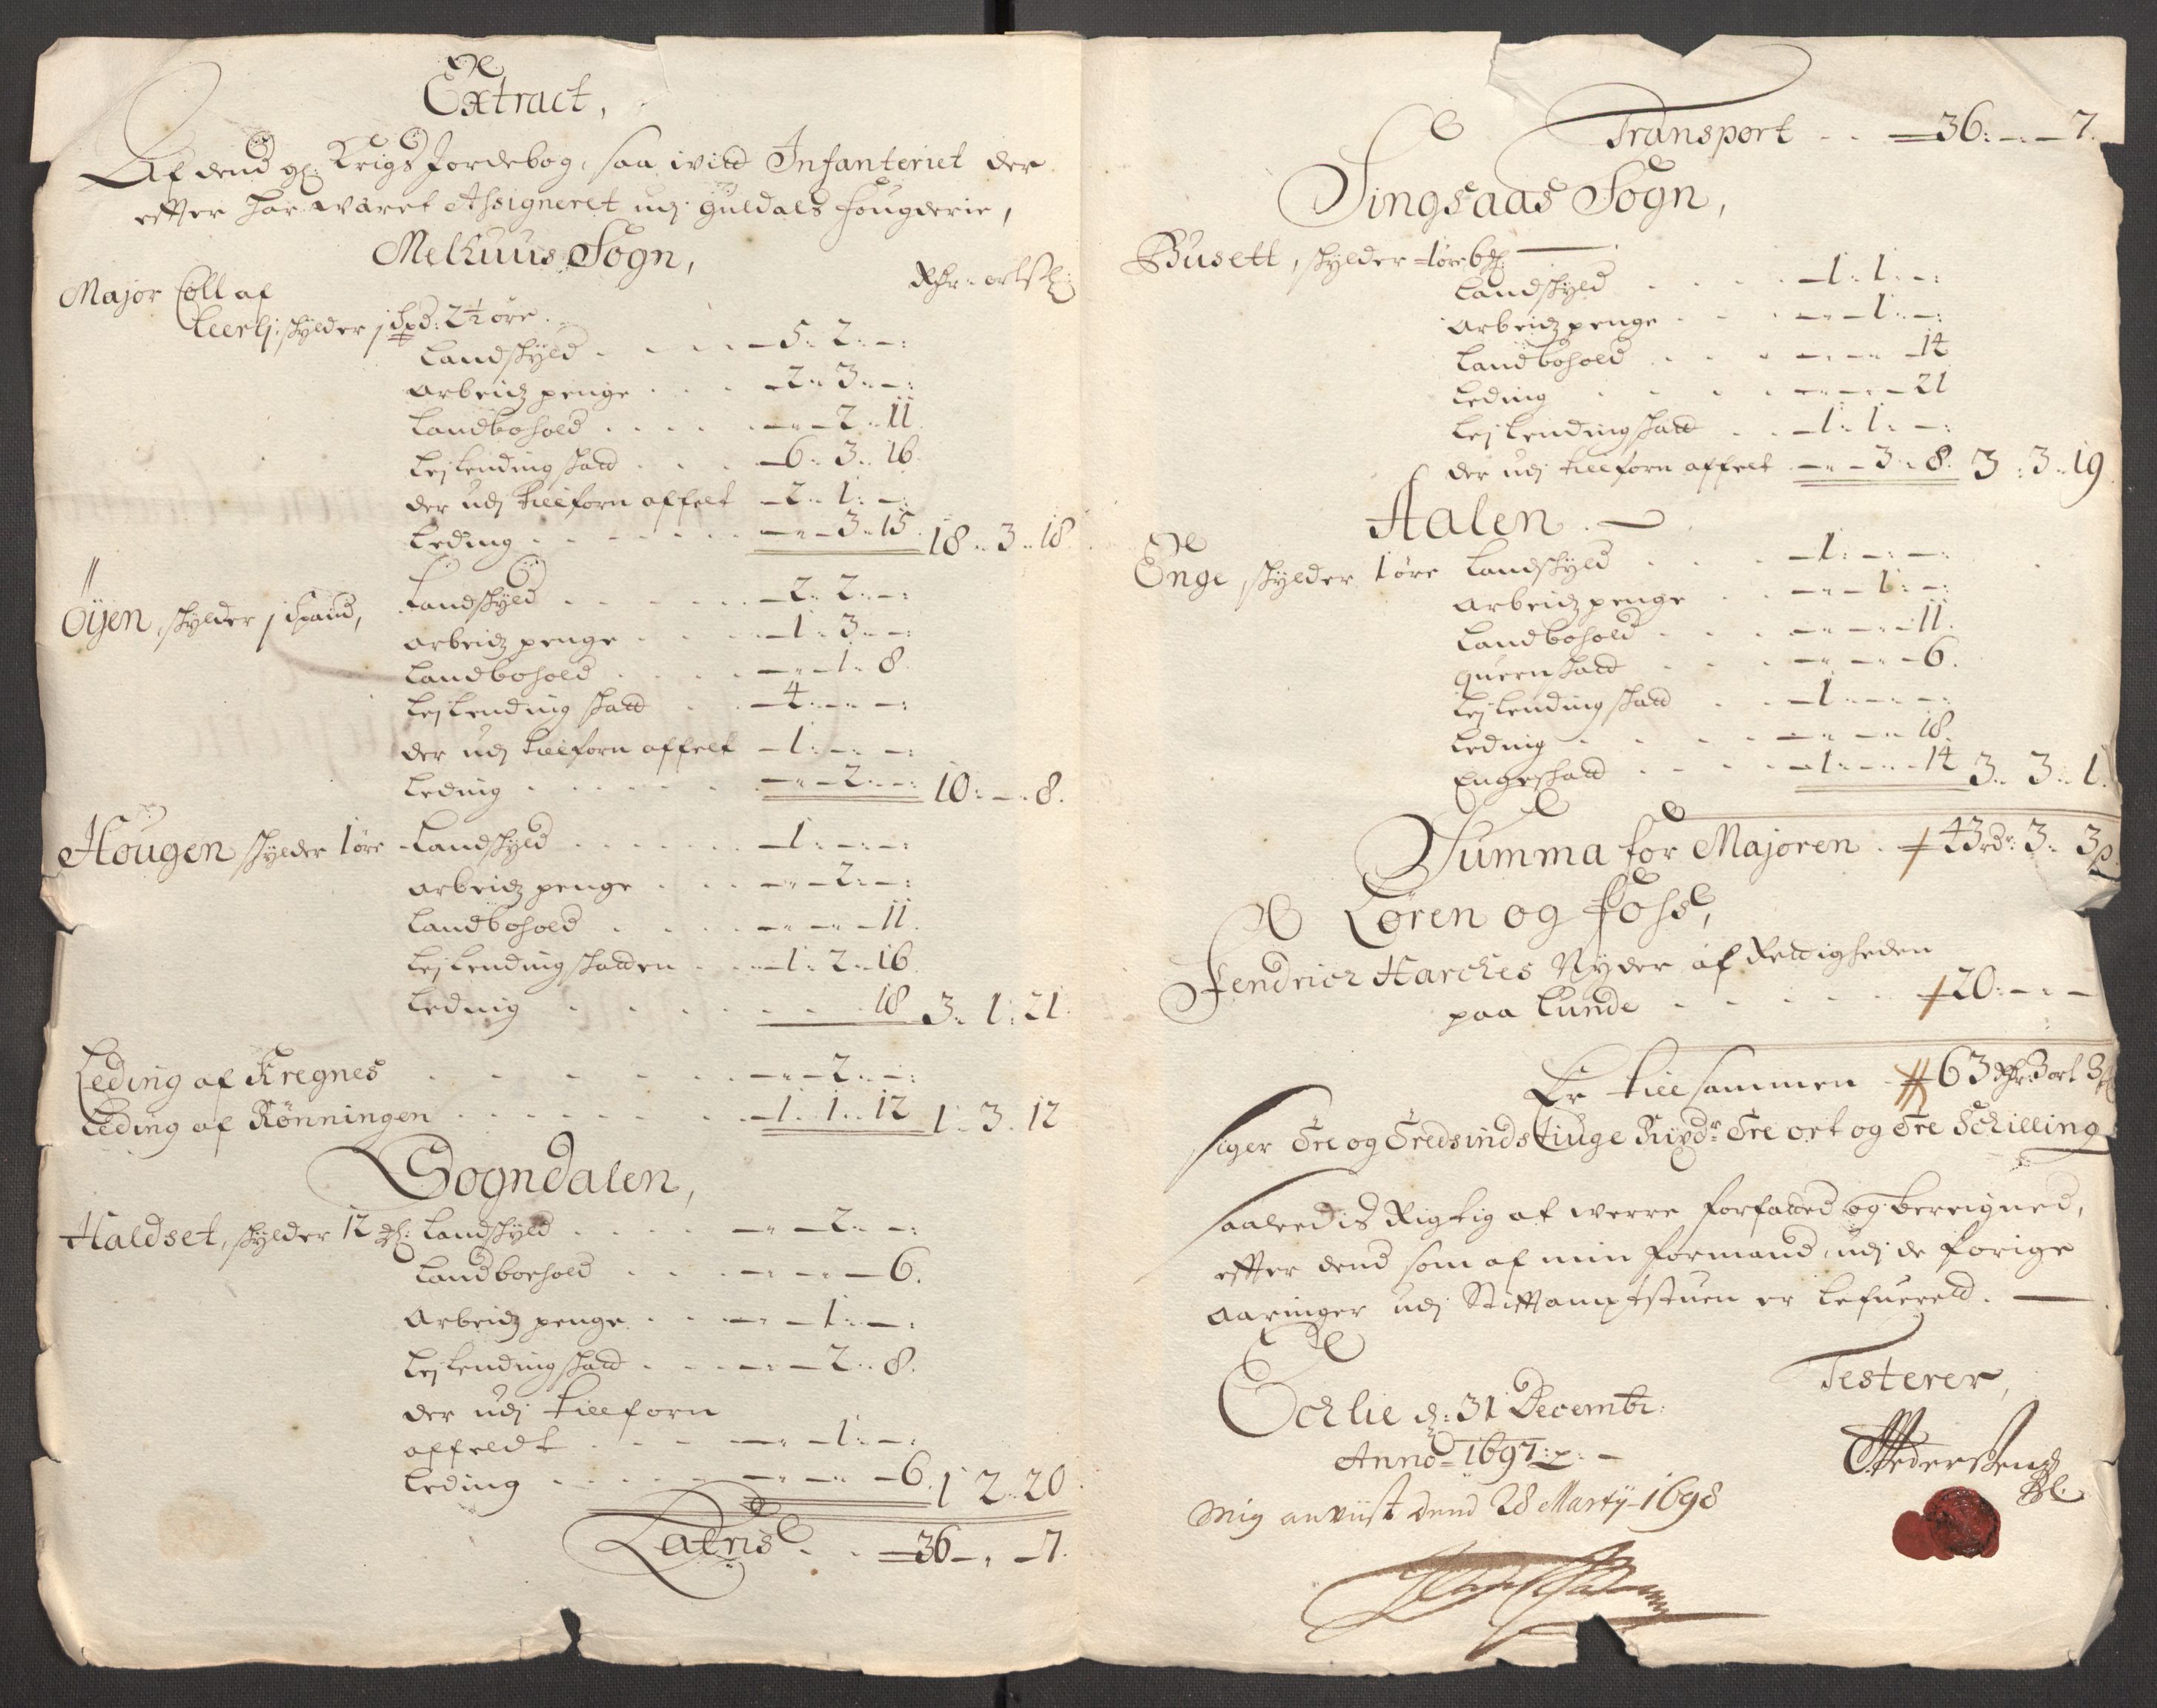 Extract,
Af dend gl: Krigs Jordebog, saa vidt Infanteriet der
effter har wäret Assigneret udj Guldals Fougderie,
Melhuus Sogn,
Rdr - ort s:
Major Coll af
Leerlj: skylder j spd: 2½ øre.
Landskyld . . . 5: 2: -:
Arbeidz penge . . . 2: 3: -:
Landbohold . . . -: 2: 11
Lejlending skatt . . . 6: 3: 16
der udj tillforn affelt 2: 1: -:
Leding . . . -: 3: 15 18: 3: 18
Øyen, skylder j spand, Landskyld . . . 2: 2: -:
Arbeidz penge . . . 1: 3: -:
Landbohold . . . -: 1: 8
Lejlending skatt . . . 4: -: -:
der udj tillforn affelt 1: -: -:
Leding . . . -: 2: -: 10: -: 8.
Hougen skylder 1 øre Landskyld . . . 1: -: -:
Arbeidz penge . . . -: 2: -:
Landbohold . . . -: -: 11.
Lejlending skatten . . . 1: 2: 16
Leding . . . 18 3: 1: 21.
Leding af Kregnes . . . -: 2: -:
Leding af Rønningen . . . 1: 1: 12 1: 3: 12
Sogndalen,
Haldset, skylder 12 Landskyld . . . -: 2: -:
Landboehold . . . -: -: 6.
Arbeidz penge . . . -: 1: -:
Lejlending skatt . . . -: 2: 8.
der udj tillforn
affeldt . . . -: 1: -:
Leding . . . -: -: 6. 1: 2: 20
Lateris . . 36 -: 7.
Transport . . 36: -: 7.
Singsaas Sogn,
Busett, skylder 1 øre 6
Landskyld . . . 1: 1: -:
Arbeidz penge . . . -: 1: -:
Landbohold . . . -: -: 14
Leding . . . -: -: 21
Lejlending skatt . . 1: 1: -:
der udj tillforn affelt -: 3: 8. 3: 3: 19
Aalen.
Enge, skylder 1 øre Landskyld . . . 1: -: -:
Arbeidz penge . . -: 1: -:
Landbohold . . . -: -: 11.
Quern skatt . . . -: -: 6.
Lejlending skatt . . 1: -: -:
Leding . . . -: -: 18.
Enge skatt . . . 1: -: 14 3: 3: 1.
Summa for Majoren . 43 rdr: 3: 3 s
Løren og Foss,
Fendrich Harches Nyder af Rettigheden
paa Lunde . . . 20: -: -
Er tillsammen 63 Rdr 3 ort 3 s
siger Tre og Tredsindstiuge Rixdr Tre ort og Tre Schilling
saaledis Rigtig at werre forfatted og bereigned,
effter dend som af min formand udj de forige
Aaringer udj Stifftamptstuen er lefuereld.
Testerer,
Echlie d: 31 Decembr:
Anno 1697
PPedersen
Mig anviist dend 28 Martij 1698